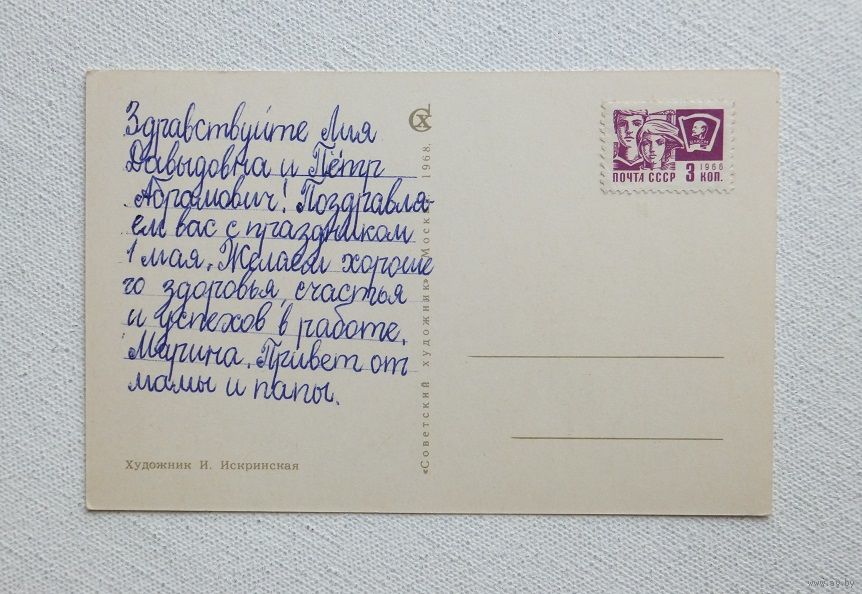 Здравствуйте Лия
Давыдовна и Пётр
Абрамович! Поздравля-
ем вас с праздником
1 мая. Желаем хороше
го здоровья, счастья
и успехов в работе.
Марина. Привет от
мамы и папы.
Художник И. Искринская
«Советский художник» Москва 1968.
СХ
1966
ПОЧТА СССР 3 КОП.
www.ay.by